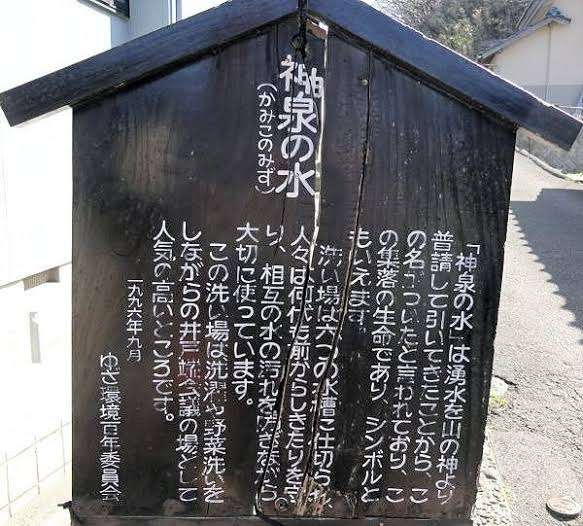 神泉の水
（かみこのみず）
「神泉の水」は湧水を山の神より
普請して引いてきたことから、こ
の名がついたと言われており、こ
の集落の生命であり、シンボルと
もいえます。
洗い場は六つの水槽に仕切られ、
人々は何代も前からしきたりを守
り、相互の水の汚れを防ぎながら
大切に使っています。
この洗い場は洗濯や野菜洗いを
しながらの井戸端会議の場として
人気の高いところです。
一九九六年九月
ゆざ環境百年委員会